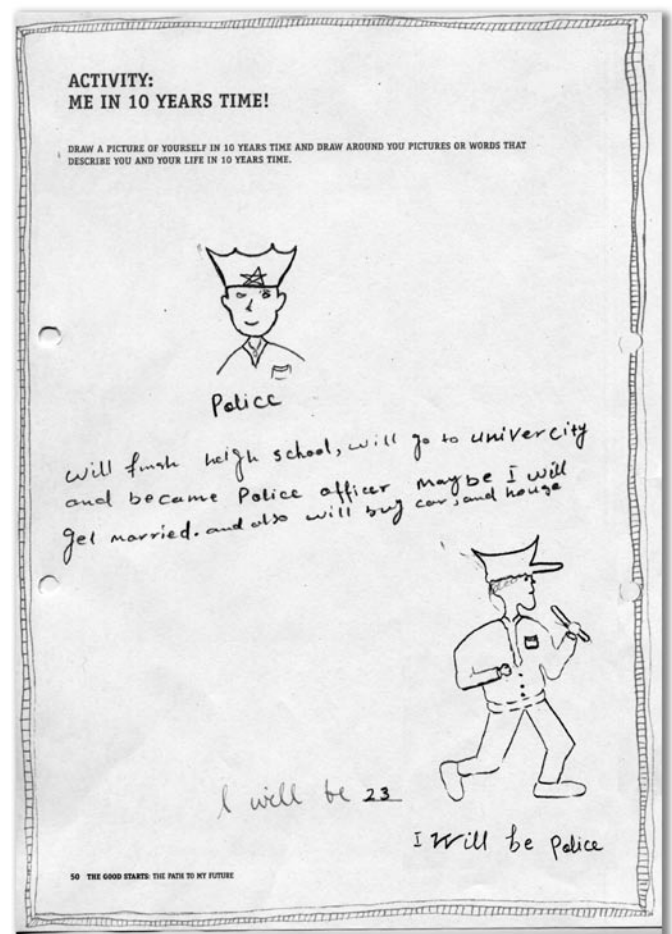 ACTIVITY:
ME IN 10 YEARS TIME!
DRAW A PICTURE OF YOURSELF IN 10 YEARS TIME AND DRAW AROUND YOU PICTURES OR WORDS THAT
DESCRIBE YOU AND YOUR LIFE IN 10 YEARS TIME.
Police
will finsh heigh school, will go to univercity
and became Police officer maybe I will
get married. and also will buy car, and house
I will be 23
I will be Police
50 THE GOOD STARTS: THE PATH TO MY FUTURE